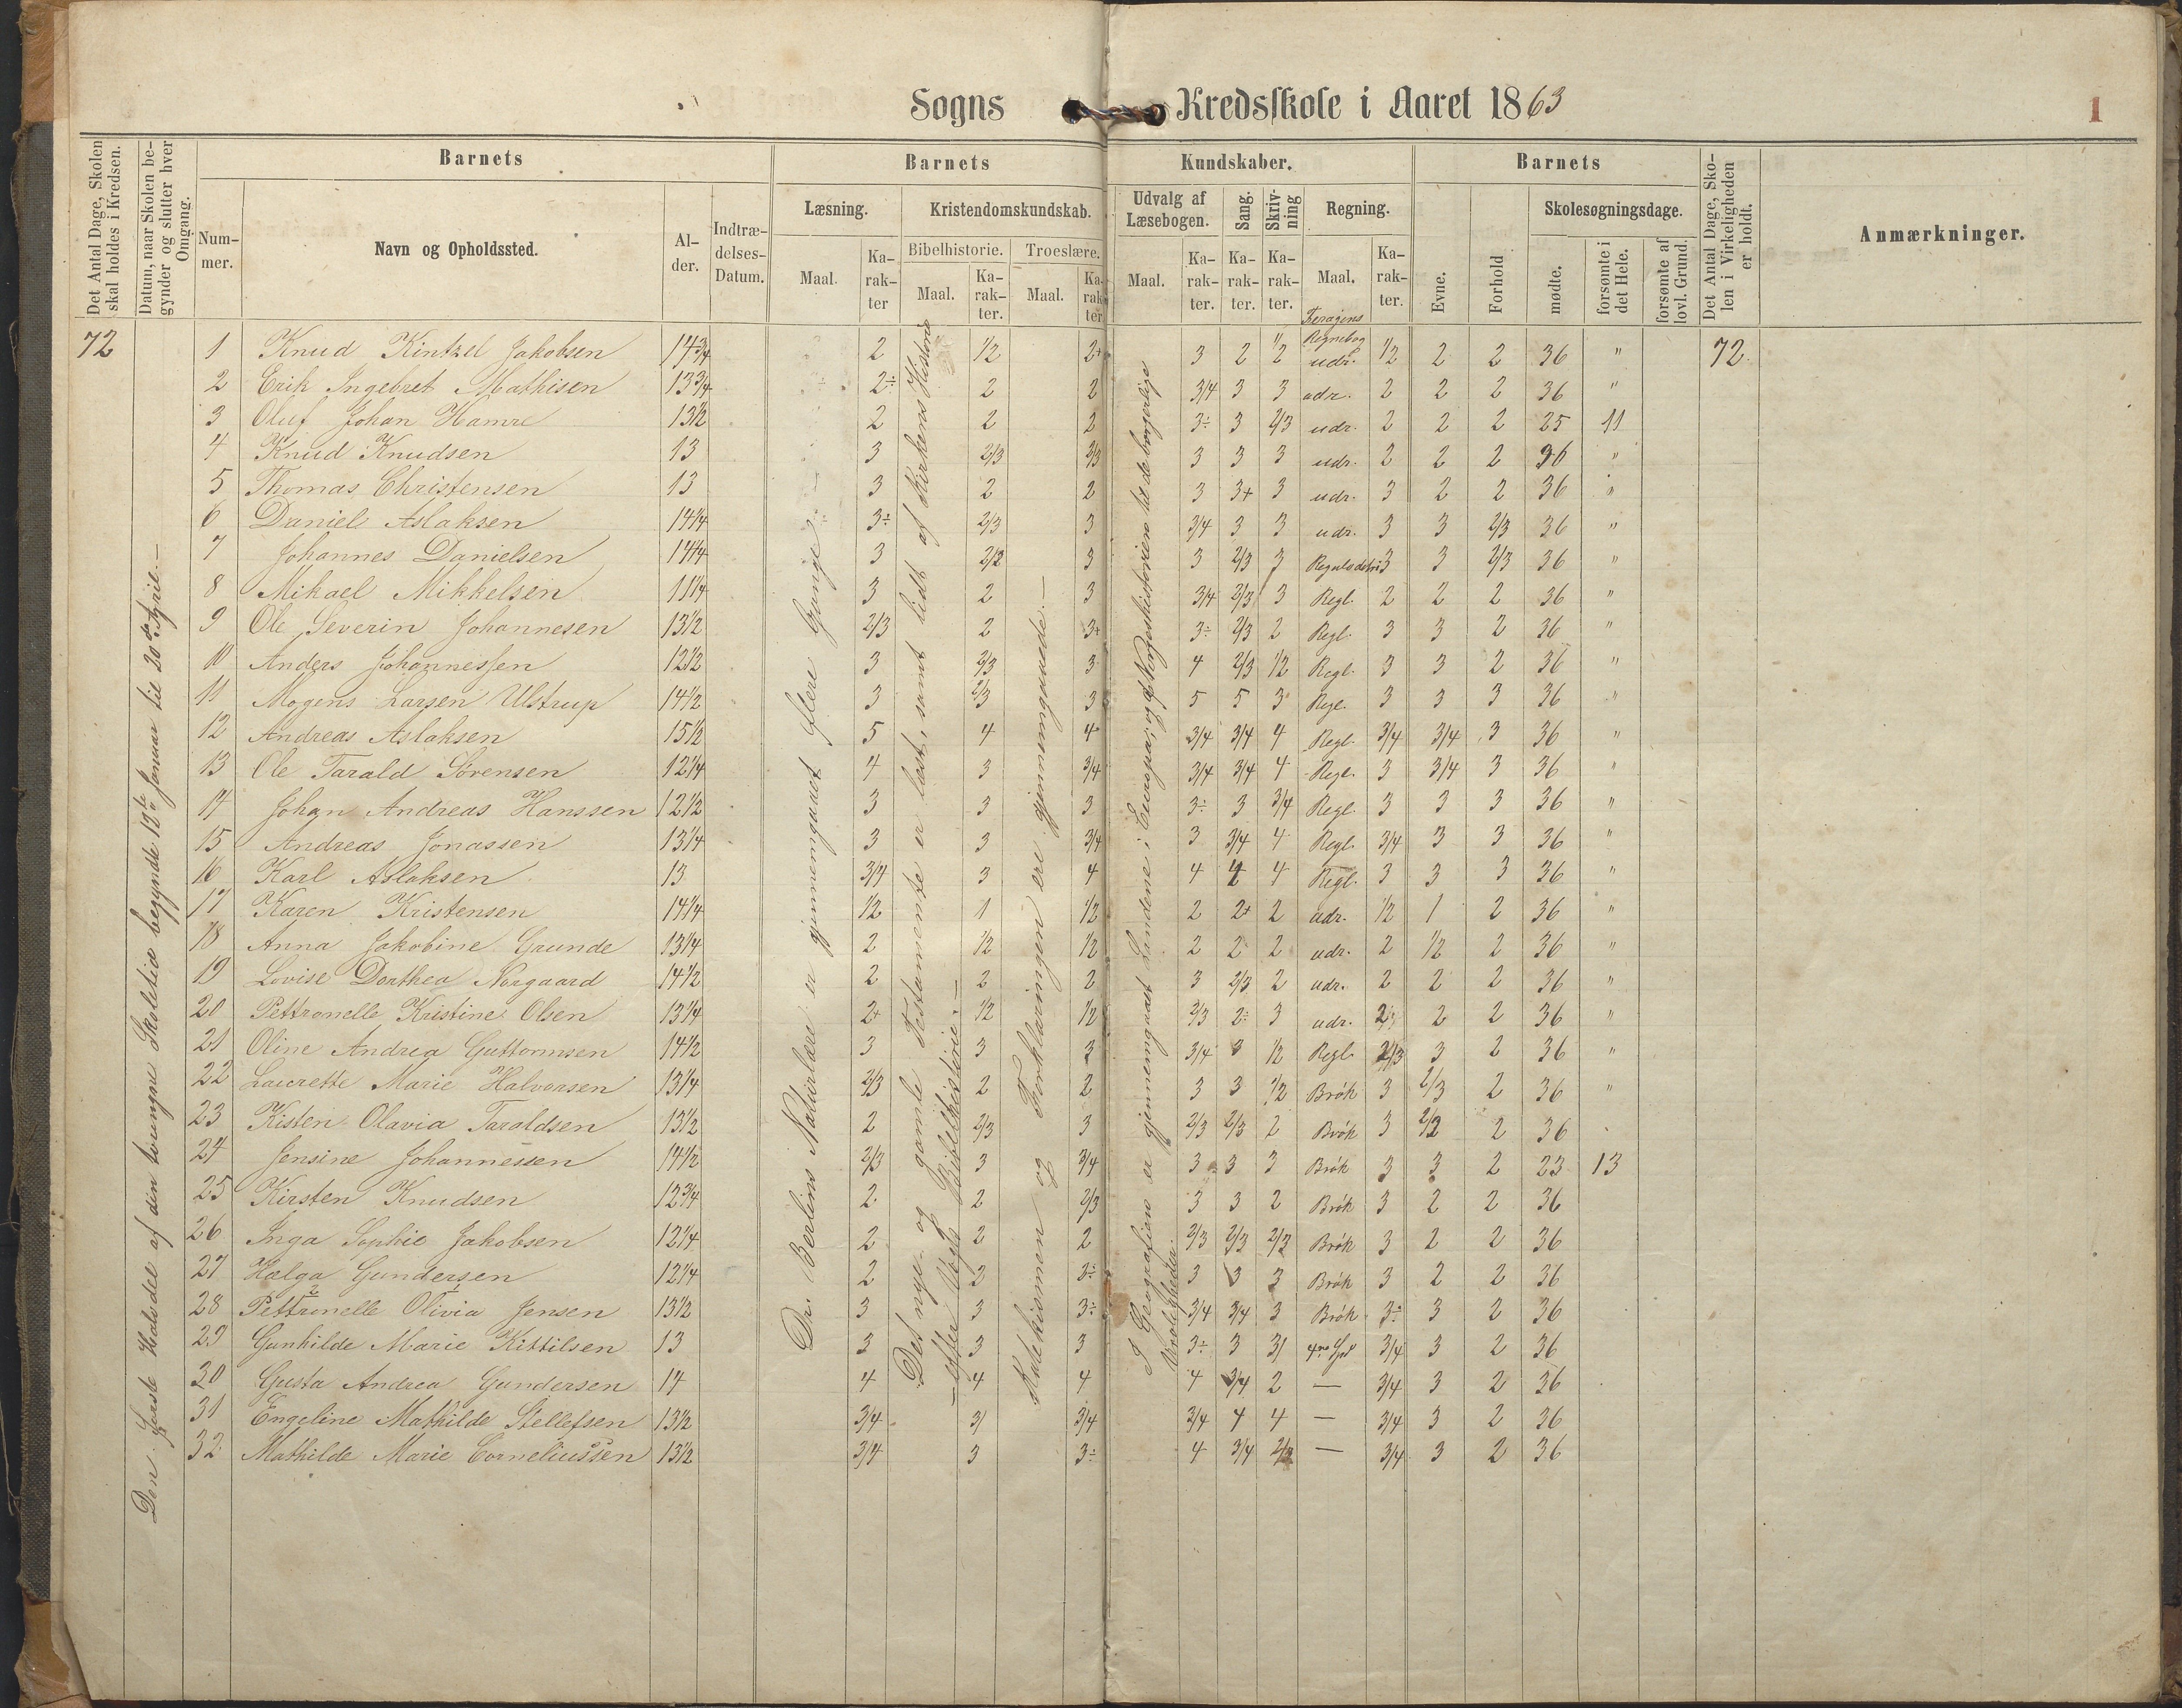 Sogns Kredsskole i Aaret 1863
1
Det Antal Dage, Skolen skal holdes i Kredsen.
Datum, naar Skolen begynder og slutter hver Omgang.
Barnets
Nummer.
Navn og Opholdssted.
Alder.
Indtrædelses-Datum.
Barnets Kundskaber.
Læsning.
Maal.
Karakter
Kristendomskundskab.
Bibelhistorie.
Maal.
Karakter.
Troeslære.
Maal.
Karakter
Udvalg af Læsebogen.
Maal.
Karakter.
Sang.
Karakter.
Skrivning
Karakter.
Regning.
Maal.
Karakter.
Barnets
Evne.
Forhold
Skolesøgningsdage.
mødte.
forsømte i det Hele.
forsømte af lovl. Grund.
Det Antal Dage, Skolen i Virkeligheden er holdt.
Anmærkninger.
Den første Halvdel af den tvungne Skoletid begyndte 12te Januar til 20de April.—
Dr. Berlins Naturlære er gjennemgaaet flere Gange.—
Det nye og gamle Testamente er læst, samt lidt af Kirkens Historie
—efter Vogts Bibelhistorie.—
Katekismen og Forklaringen ere gjennemgaaede.—
I Geografien er gjennemgaaet Landene i Europa; og af Norges historien til de borgerlige
Uroligheder.
Regnebog
72 1 Knud Kintzel Jakobsen 14 3/4 2 1/2 2+ 3 2 1/2 udr. 1/2 2 2 36 " 72.
2 Erik Ingebret Mathisen 13 3/4 2÷ 2 2 3/4 3 3 udr. 2 2 2 36 "
3 Oluf Johan Hamre 13 1/2 2 2 2 3÷ 3 2/3 udr. 2 2 2 25 11
4 Knud Knudsen 13 3 2/3 2/3 3 3 3 udr. 2 2 2 36 "
5 Thomas Christensen 13 3 2 2 3 3+ 3 udr. 3 2 2 36 "
6 Daniel Aslaksen 14 1/4 3÷ 2/3 3 3/4 3 3 udr. 3 3 2/3 36 "
7 Johannes Danielsen 14 1/4 3 2/3 3 3 2/3 3 Reguladetri 3 3 2/3 36 "
8 Mikael Mikkelsen 11 1/4 3 2 3 3/4 2/3 3 Regl. 2 2 2 36 "
9 Ole Severin Johannesen 13 1/2 2/3 2 3+ 3÷ 2/3 2 Regl. 3 3 2 36 "
10 Anders Johannessen 12 1/2 3 2/3 3 4 2/3 1/2 Regl. 3 3 2 36 "
11 Mogens Larsen Ulstrup 14 1/2 3 2/3 3 5 5 3 Regl. 3 3 3 36 "
12 Andreas Aslaksen 15 1/2 5 4 4 3/4 3/4 4 Regl. 3/4 3/4 3 36 "
13 Ole Tarald Sørensen 12 1/4 4 3 3/4 3/4 3/4 4 Regl. 3 3/4 3 36 "
14 Johan Andreas Hanssen 12 1/2 3 3 3 3÷ 3 3/4 Regl. 3 3 3 36 "
15 Andreas Jonassen 13 1/4 3 3 3/4 3 3/4 4 Regl. 3/4 3 3 36 "
16 Karl Aslaksen 13 3/4 3 4 4 4 4 Regl. 3 3 3 36 "
17 Karen Kristensen 14 1/4 1/2 1 1/2 2 2+ 2 udr. 1/2 1 2 36 "
18 Anna Jakobine Grunde 13 1/4 2 1/2 1/2 2 2÷ 2 udr. 2 1/2 2 36 "
19 Lovise Dorthea Norgaard 14 1/2 2 2 2 3 2/3 2 udr. 2 2 2 36 "
20 Pettronelle Kristine Olsen 13 1/4 2+ 1/2 1/2 2/3 2÷ 3 udr. 2/3 2 2 36 "
21 Oline Andrea Guttormsen 14 1/2 3 3 3 3/4 3 1/2 Regl. 2/3 3 2 36 "
22 Laurette Marie Halvorsen 13 1/4 2/3 2 2 3 3 1/2 Brøk 3 2/3 2 36 "
23 Kisten Olavia Taraldsen 13 1/2 2 2/3 3 2/3 2/3 2 Brøk 3 2/3 2 36
24 Jensine Johannessen 14 1/2 2/3 3 3/4 3 3 3 Brøk 3 3 2 23 13
25 Kirsten Knudsen 12 3/4 2 2 2/3 3 3 2 Brøk 3 2 2 36
26 Inga Sophie Jakobsen 12 1/4 2 2 2 2/3 2/3 2/3 Brøk 3 2 2 36
27 Hælga Gundersen 12 1/4 2 2 2÷ 3 3 3 Brøk 3 2 2 36
28 Pettronelle Olivia Jensen 13 1/2 3 3 3÷ 3/4 3/4 3 Brøk 3÷ 3 2 36
29 Gunhilde Marie Kittilsen 13 3 3 3 3÷ 3 3/ 3/4 3 2 36
30 Gusta Andrea Gundersen 14 4 4 4 4 3/4 2 — 3/4 3 2 36
31 Engeline Mathilde Stellefsen 13 1/2 3/4 3/ 3/4 3/4 4 4 — 3/4 3 2 36
32 Mathilde Marie Corneliussen 13 1/2 3/4 3 3÷ 4 3/4 2/3 — 3/4 3 2 36